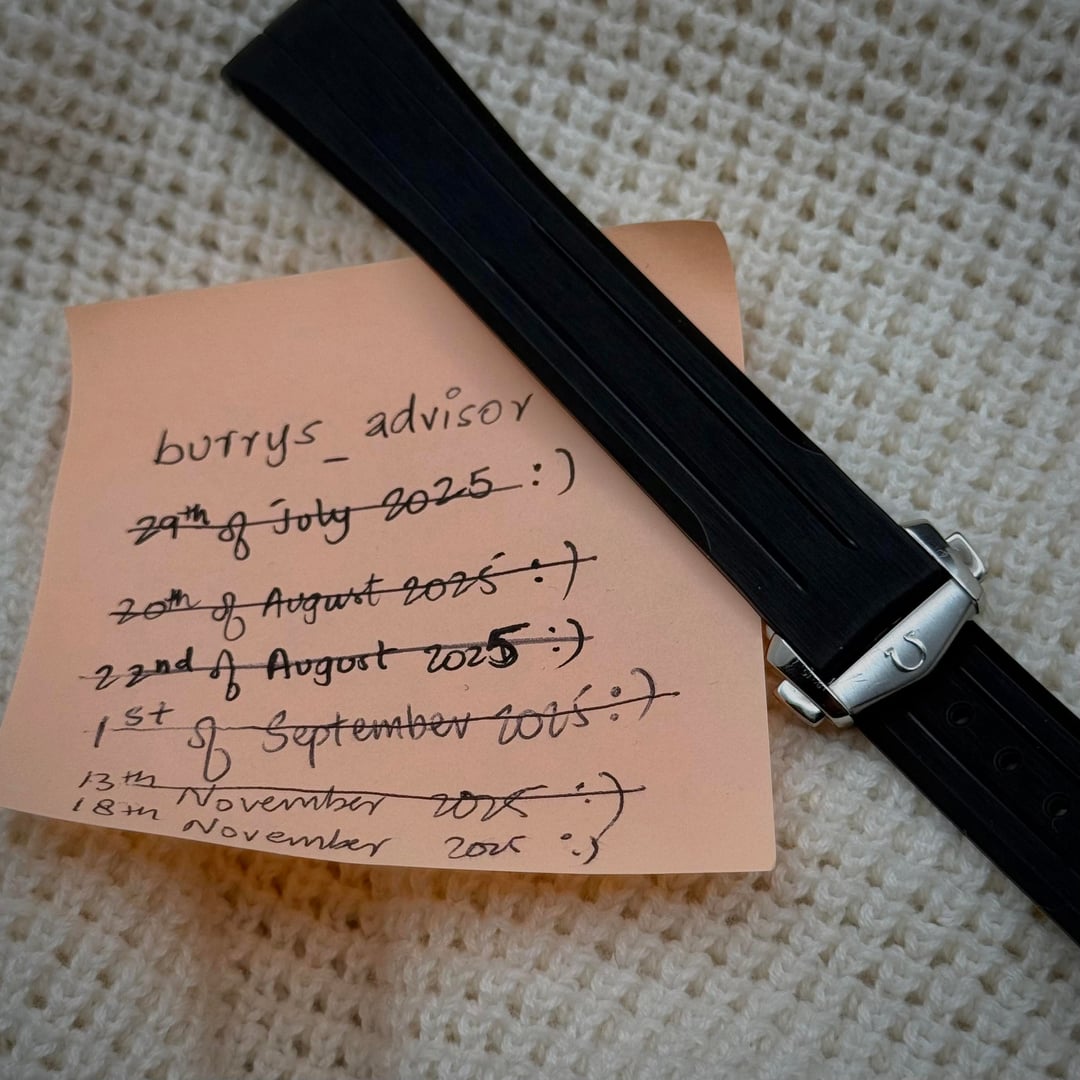 burrys_advisor
29th of July 2025 :)
20th of August 2025 :)
22nd of August 2025 :)
1st of September 2025 :)
13th November 2025 :)
18th November 2025 :)